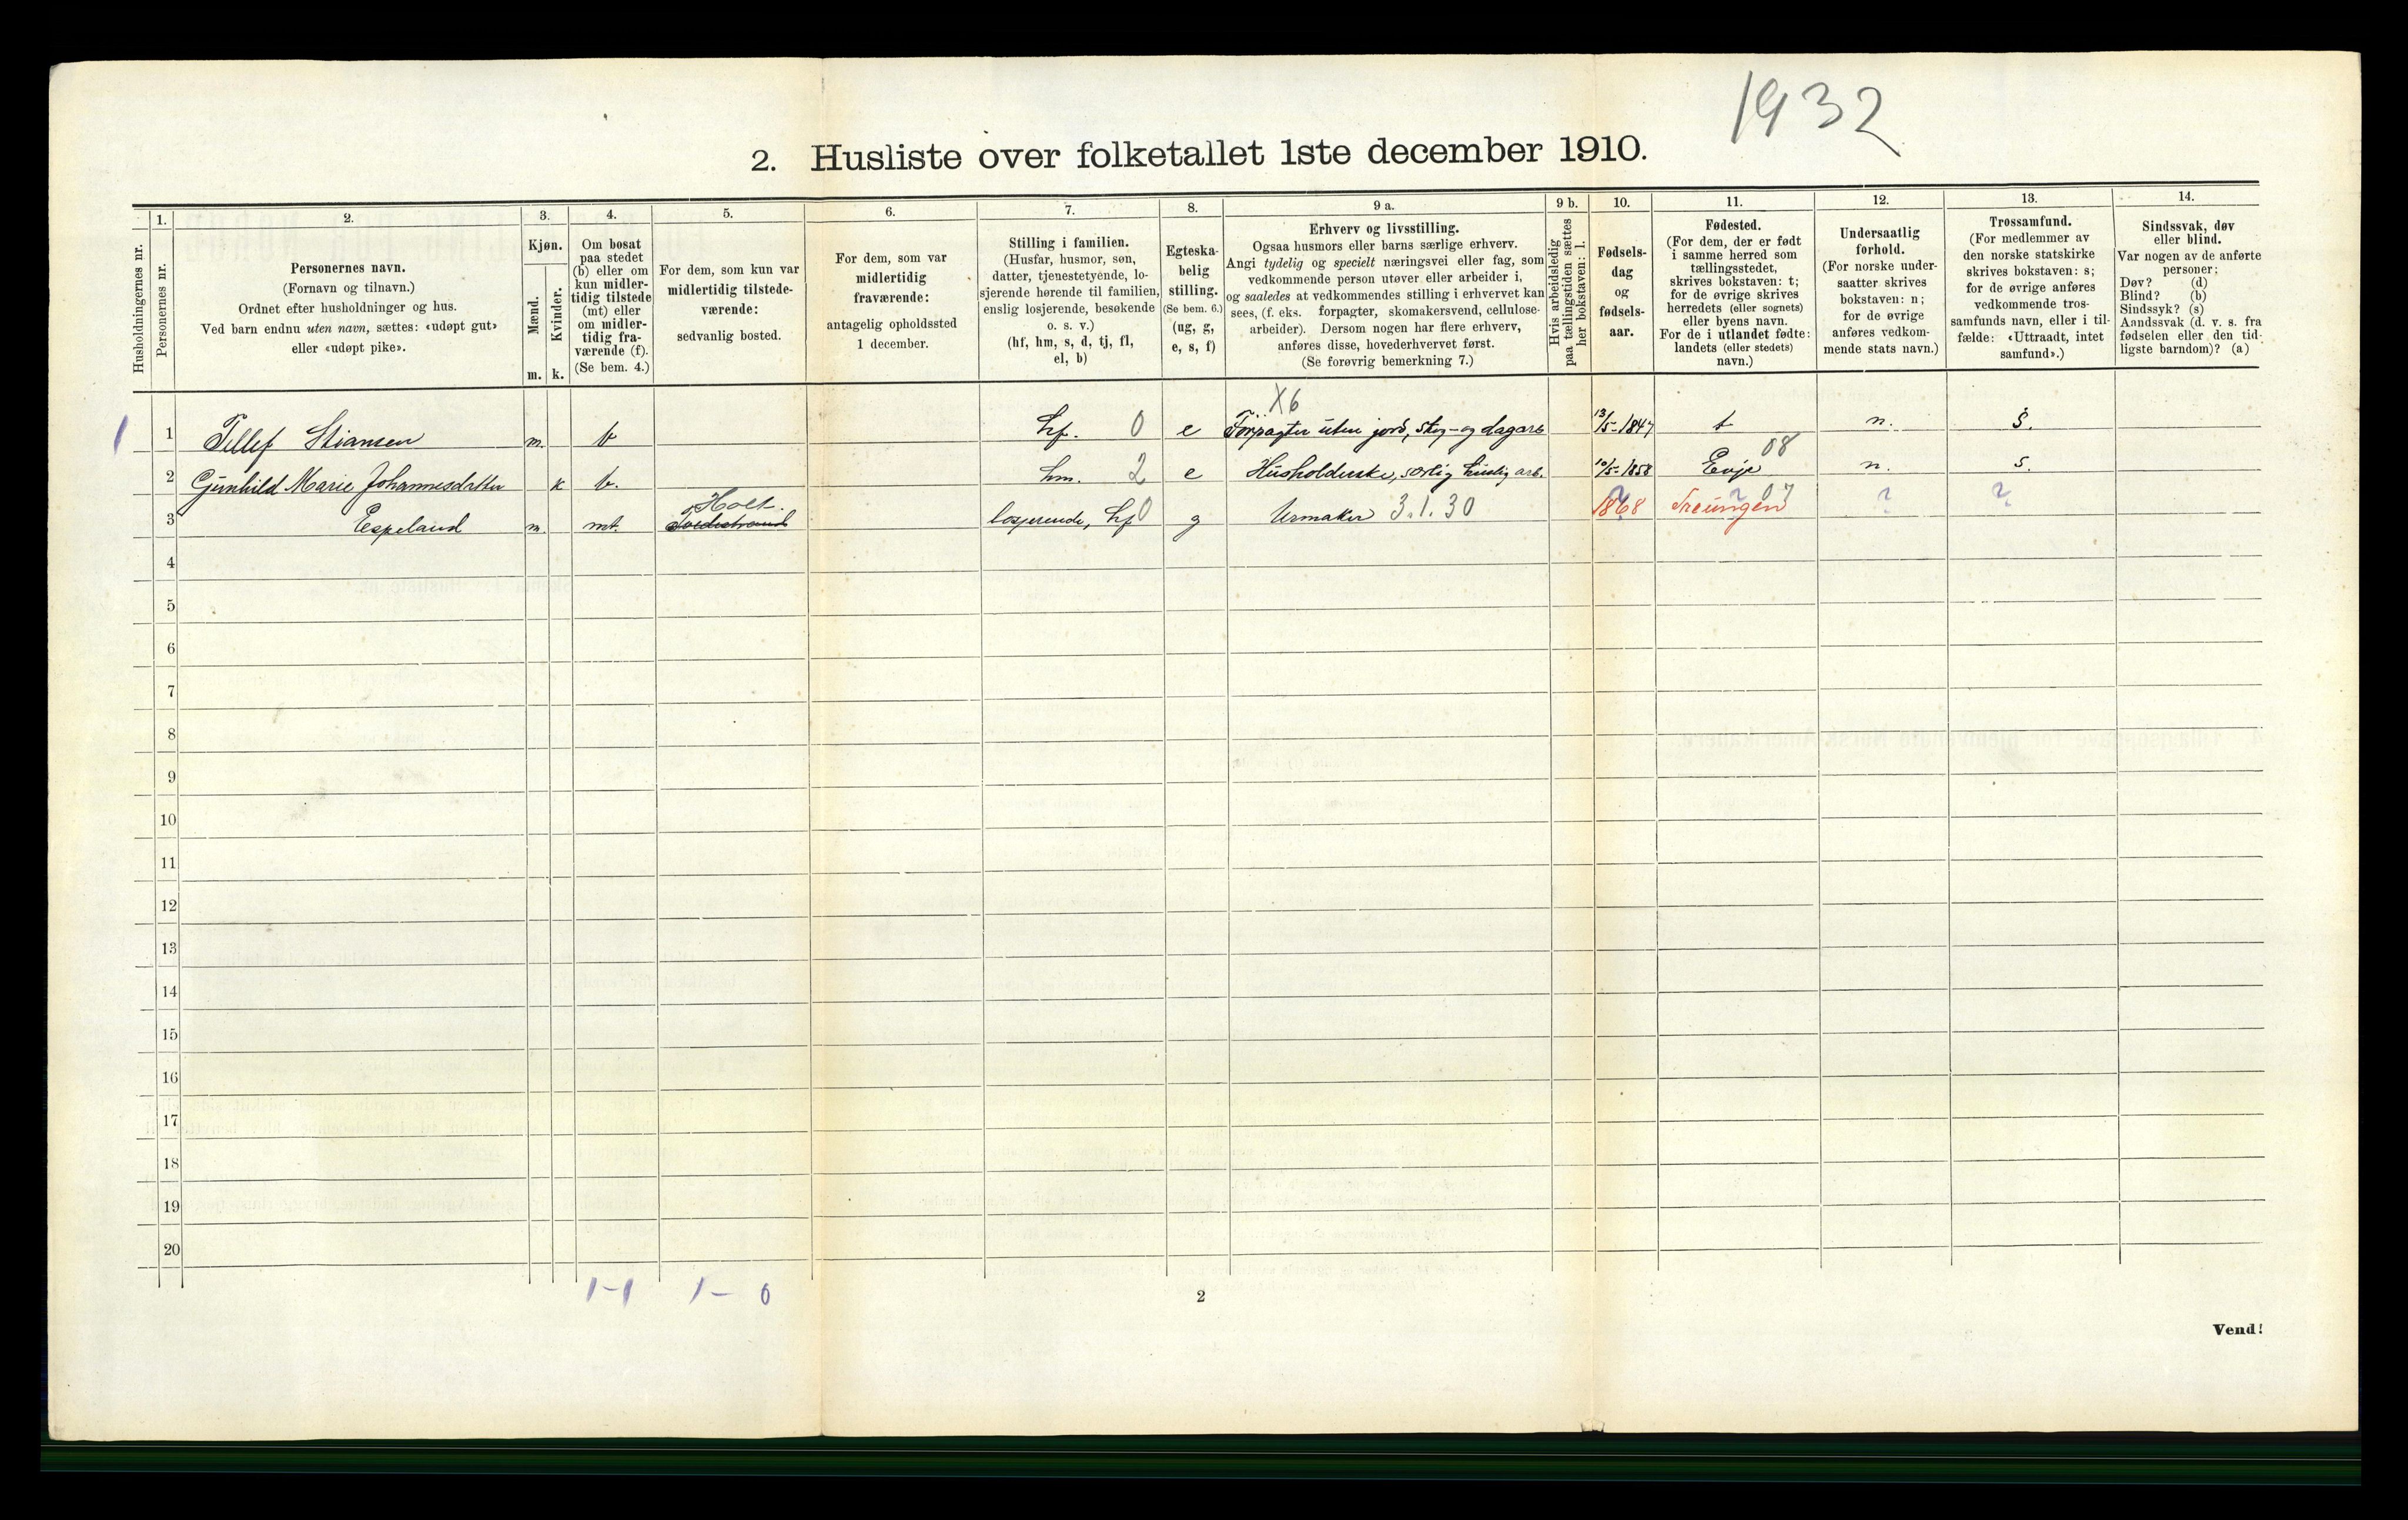 1932
2. Husliste over folketallet 1ste december 1910.
Husholdningernes nr.
1.
Personernes nr.
2.
Personernes navn.
(Fornavn og tilnavn.)
Ordnet efter husholdninger og hus.
Ved barn endnu uten navn, sættes: «udøpt gut»
eller «udøpt pike».
3.
Kjøn.
Mænd.
Kvinder.
m. k.
4.
Om bosat
paa stedet
(b) eller om
kun midler-
tidig tilstede
(mt) eller
om midler-
tidig fra-
værende (f).
(Se bem. 4.)
5.
For dem, som kun var
midlertidig tilstede-
værende:
sedvanlig bosted.
6.
For dem, som var
midlertidig
fraværende:
antagelig opholdssted
1 december.
7.
Stilling i familien.
(Husfar, husmor, søn,
datter, tjenestetyende, lo-
sjerende hørende til familien,
enslig losjerende, besøkende
o. s. v.)
(hf, hm, s, d, tj, fl,
el, b)
8.
Egteska-
belig
stilling.
(Se bem. 6.)
(ug, g,
e, s, f)
9 a.
Erhverv og livsstilling.
Ogsaa husmors eller barns særlige erhverv.
Angi tydelig og specielt næringsvei eller fag, som
vedkommende person utøver eller arbeider i,
og saaledes at vedkommendes stilling i erhvervet kan
sees, (f. eks. forpagter, skomakersvend, cellulose-
arbeider). Dersom nogen har flere erhverv,
anføres disse, hovederhvervet først.
(Se forøvrig bemerkning 7.)
9 b.
Hvis arbeidsledig
paa tællingstiden sættes
her bokstaven: l.
10.
Fødsels-
dag
og
fødsels-
aar.
11.
Fødested.
(For dem, der er født
i samme herred som
tællingsstedet,
skrives bokstaven: t;
for de øvrige skrives
herredets (eller sognets)
eller byens navn.
For de i utlandet fødte:
landets (eller stedets)
navn.)
12.
Undersaatlig
forhold.
(For norske under-
saatter skrives
bokstaven: n;
for de øvrige
anføres vedkom-
mende stats navn.)
13.
Trossamfund.
(For medlemmer av
den norske statskirke
skrives bokstaven: s;
for de øvrige anføres
vedkommende tros-
samfunds navn, eller i til-
fælde: «Uttraadt, intet
samfund».)
14.
Sindssvak, døv
eller blind.
Var nogen av de anførte
personer;
Døv? (d)
Blind? (b)
Sindssyk? (s)
Aandssvak (d. v. s. fra
fødselen eller den tid-
ligste barndom)? (a)
X6
1 1 Tellef Stiansen m. b hf. 0 e Forpagter uten jord, skog- og dagarb 13/5-1847 t n. s.
08
2 Gunhild Marie Johannesdatter k b. hm. 2 e Husholderske, særlig huslig arb. 10/5-1858 Evje n. s.
Holt.
3 Espeland m. mt. Tvedestrand losjerende, hf 0 g Urmaker 3.1.30 1868 ? Treungen ? 07 ? ?
4
5
6
7
8
9
10
11
12
13
14
15
16
17
18
19
20
1-1 1-0
2
Vend!